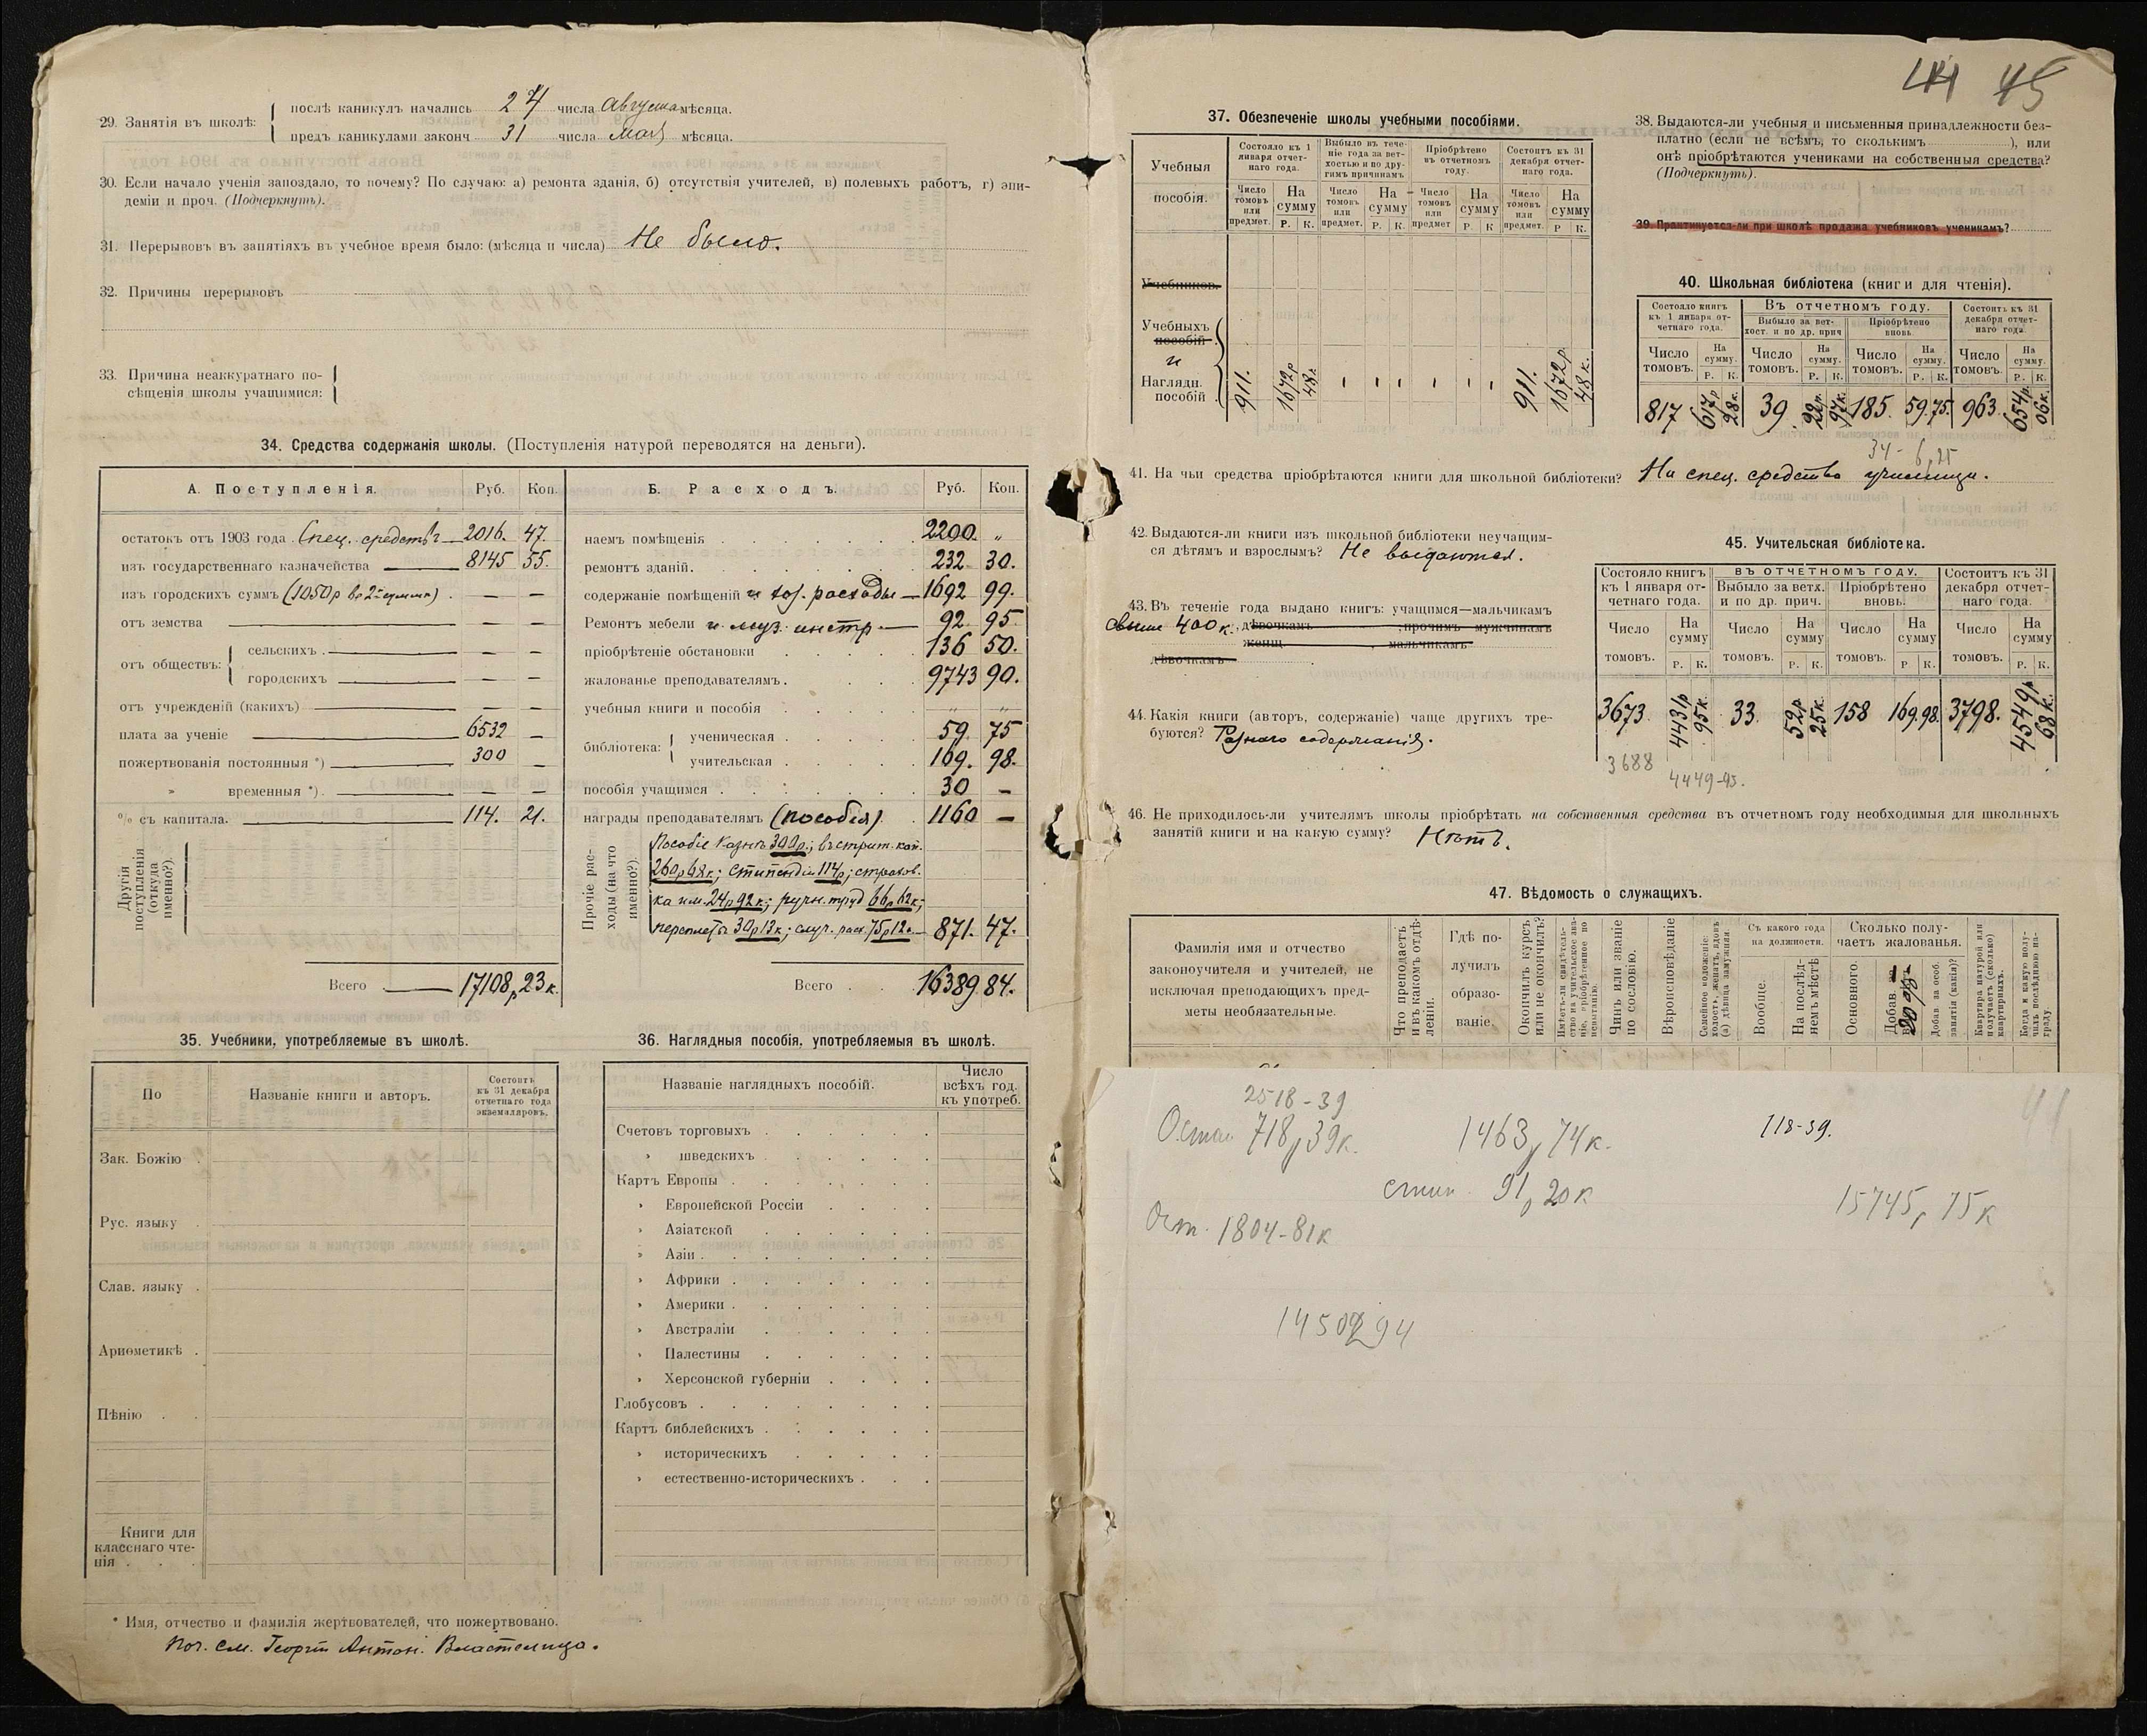 29. Занятія въ школѣ:
послѣ каникулъ начались 24 числа Августа мѣсяца.
предъ каникулами законч 31 числа Мая мѣсяца.
30. Если начало ученія запоздало, то почему? По случаю: а) ремонта зданія, б) отсутствія учителей, в) полевыхъ работъ, г) эпи-
деміи и проч. (Подчеркнуть).
31. Перерывовъ въ занятіяхъ въ учебное время было: (мѣсяца и числа) Не было.
32. Причины перерывовъ
33. Причина неаккуратнаго по-
сѣщенія школы учащимися:
34. Средства содержанія школы. (Поступленія натурой переводятся на деньги).
А. Поступленія. Руб. Коп.
остатокъ отъ 1903 года Спец. средствъ 2016. 47.
изъ государственнаго казначейства 8145 55.
изъ городскихъ суммъ (1050р — —
отъ земства — —
отъ обществъ: сельскихъ — —
городскихъ — —
отъ учрежденій (какихъ) — —
плата за ученіе 6532 —
пожертвованія постоянныя *) 300 —
» временныя *) — —
% съ капитала. 114. 21.
Другія поступленія (откуда именно?).
Всего 17108р 23к.
Б. Расходъ. Руб. Коп.
наемъ помѣщенія 2200. „
ремонтъ зданій. 232 30.
содержаніе помѣщеній и хоз. расходы 1692 99.
Ремонтъ мебели и муз. инстр. 92. 95
пріобрѣтеніе обстановки 136 50.
жалованье преподавателямъ. 9743 90.
учебныя книги и пособія „ „
библіотека: ученическая 59. 75
учительская 169. 98.
пособія учащимся 30 —
награды преподавателямъ (пособія) 1160 —
Прочіе рас-
ходы (на что
именно?).
Пособіе Казнѣ 300р.; въ строит. кап.
260р68к; стипендіи 114р; страхов.
ка им. 24р92к; ручн. труд 66р62к;
переплетъ 30р13к; случ. расх. 75р12к. 871. 47.
Всего 16389. 84.
35. Учебники, употребляемые въ школѣ.
По Названіе книги и авторъ. Состоитъ
къ 31 декабря
отчетнаго года
экземпляровъ.
Зак. Божію
Рус. языку
Слав. языку
Ариѳметикѣ
Пѣнію
Книги для
класснаго чте-
нія
* Имя, отчество и фамилія жертвователей, что пожертвовано.
Поч. см. Георгій Антон. Властелица.
36. Наглядныя пособія, употребляемыя въ школѣ.
Названіе наглядныхъ пособій. Число
всѣхъ год.
къ употреб.
Счетовъ торговыхъ
» шведскихъ
Картъ Европы
» Европейской Россіи
» Азіатской
» Азіи
» Африки
» Америки
» Австраліи
» Палестины
» Херсонской губерніи
Глобусовъ
Картъ библейскихъ
» историческихъ
» естественно-историческихъ
45
37. Обезпеченіе школы учебными пособіями.
Учебныя
пособія.
Состояло къ 1
января отчет-
наго года.
Выбыло въ тече-
ніе года за вет-
хостью и по дру-
гимъ причинамъ
Пріобрѣтено
въ отчетномъ
году.
Состоитъ къ 31
декабря отчет-
наго года.
Число
томовъ
или
предмет. На
сумму
Р. К.
Число
томовъ
или
предмет. На
сумму
Р. К.
Число
томовъ
или
предмет На
сумму
Р К
Число
томовъ
или
предмет. На
сумму
Р К.
Учебниковъ.
Учебныхъ
пособій
и
Наглядн.
пособій
911. 1672р 48к. 911. 1672р. 48к.
38. Выдаются-ли учебныя и письменныя принадлежности без-
платно (если не всѣмъ, то сколькимъ ), или
онѣ пріобрѣтаются учениками на собственныя средства?
(Подчеркнуть).
39. Практикуется-ли при школѣ продажа учебниковъ ученикамъ?
40. Школьная библіотека (книги для чтенія).
Состояло книгъ
къ 1 января от-
четнаго года.
Въ отчетномъ году.
Выбыло за вет-
хост. и по др. прич
Пріобрѣтено
вновь.
Состоитъ къ 31
декабря отчет-
наго года.
Число
томовъ. На
сумму.
Р. К.
Число
томовъ. На
сумму.
Р. К.
Число
томовъ. На
сумму.
Р. К.
Число
томовъ. На
сумму.
Р. К.
817 617р 28к. 39. 22р. 97к. 185. 59.75. 963. 654р. 06к.
34 - 6,25
41. На чьи средства пріобрѣтаются книги для школьной библіотеки? На спец. средства училища.
42. Выдаются-ли книги изъ школьной библіотеки неучащим-
ся дѣтямъ и взрослымъ? Не выдаются.
43. Въ теченіе года выдано книгъ: учащимся—мальчикамъ
свыше 400к., дѣвочкамъ ; прочимъ мужчинамъ
женщ. , мальчикамъ
дѣвочкамъ
44. Какія книги (авторъ, содержаніе) чаще другихъ тре-
буются? Разнаго содержанія.
45. Учительская библіотека.
Состояло книгъ
къ 1 января от-
четнаго года.
ВЪ ОТЧЕТНОМЪ ГОДУ.
Выбыло за ветх.
и по др. прич.
Пріобрѣтено
вновь.
Состоитъ къ 31
декабря отчет-
наго года.
Число
томовъ. На
сумму
Р. К.
Число
томовъ. На
сумму
Р. К.
Число
томовъ. На
сумму
Р К.
Число
томовъ. На
сумму
Р. К.
3673. 4431р 95к. 33. 52р 25к. 158 169.98. 3798. 4549р 68к.
3688
4449-93.
46. Не приходилось-ли учителямъ школы пріобрѣтать на собственныя средства въ отчетномъ году необходимыя для школьныхъ
занятій книги и на какую сумму? Нѣтъ.
47. Вѣдомость о служащихъ.
Фамилія имя и отчество
законоучителя и учителей, не
исключая преподающихъ пред-
меты необязательные.
Что преподаетъ
и въ какомъ отдѣ-
леніи.
Гдѣ по-
лучилъ
образо-
ваніе.
Окончилъ курсъ
или не окончилъ?
Имѣетъ-ли свидѣтель-
ство на учительское зва-
ніе, пріобрѣтенное по
испытанію.
Чинъ или званіе
по сословію.
Вѣроисповѣданіе
Семейное положеніе:
холостъ, женатъ, вдовъ
(а) дѣвица замужняя.
Съ какого года
на должности.
Вообще.
На послѣд-
немъ мѣстѣ
Сколько полу-
чаетъ жалованья.
Основного.
Добав.
Добав за особ.
занятія (какія)?
Квартира натурой или
получаетъ (сколько)
квартирныхъ.
Когда и какую полу-
чилъ послѣднюю на-
граду.
2518 - 39
718р39к. 1463р74к. 718-39.
91р20к 15745р75к
Ост. 1804-81к